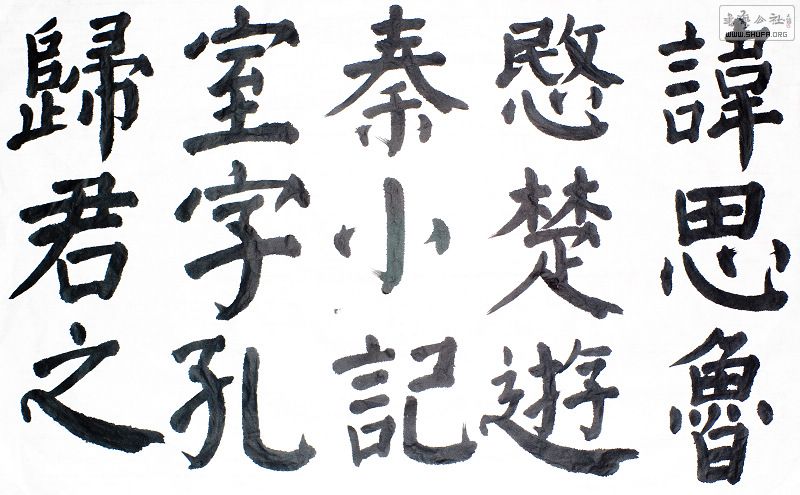 諱思魯
愍楚遊
秦小記
室字孔
歸君之
WWW.SHUFA.ORG